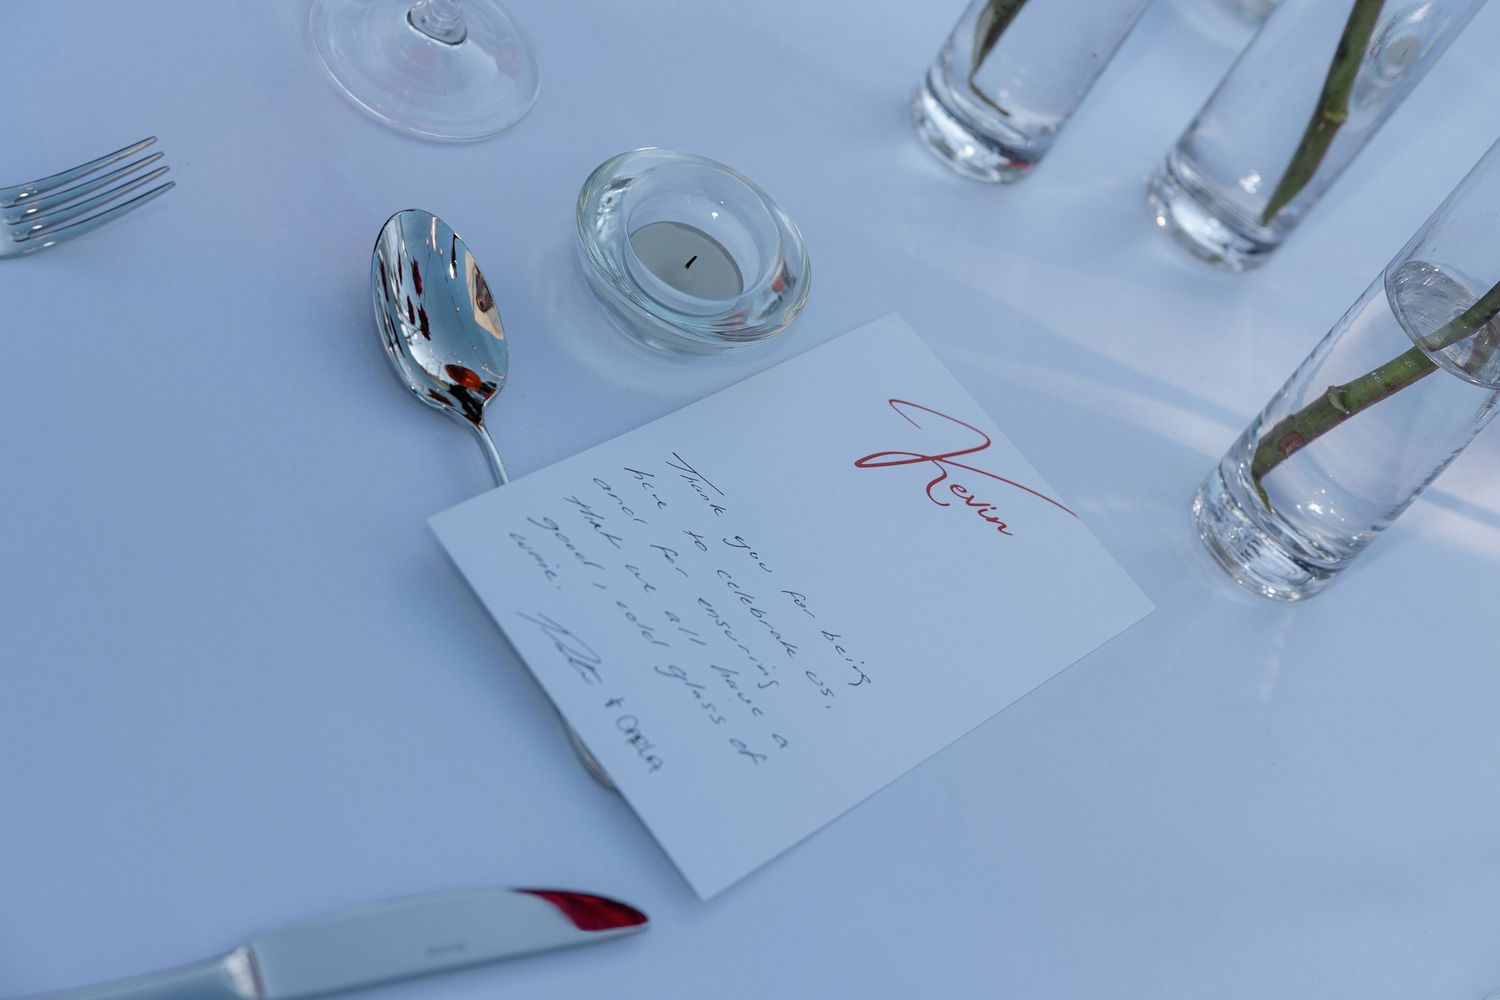 Kevin
Thank you for being
here to celebrate us,
and for ensuring
that we all have a
good, cold glass of
wine.
+ CARLA